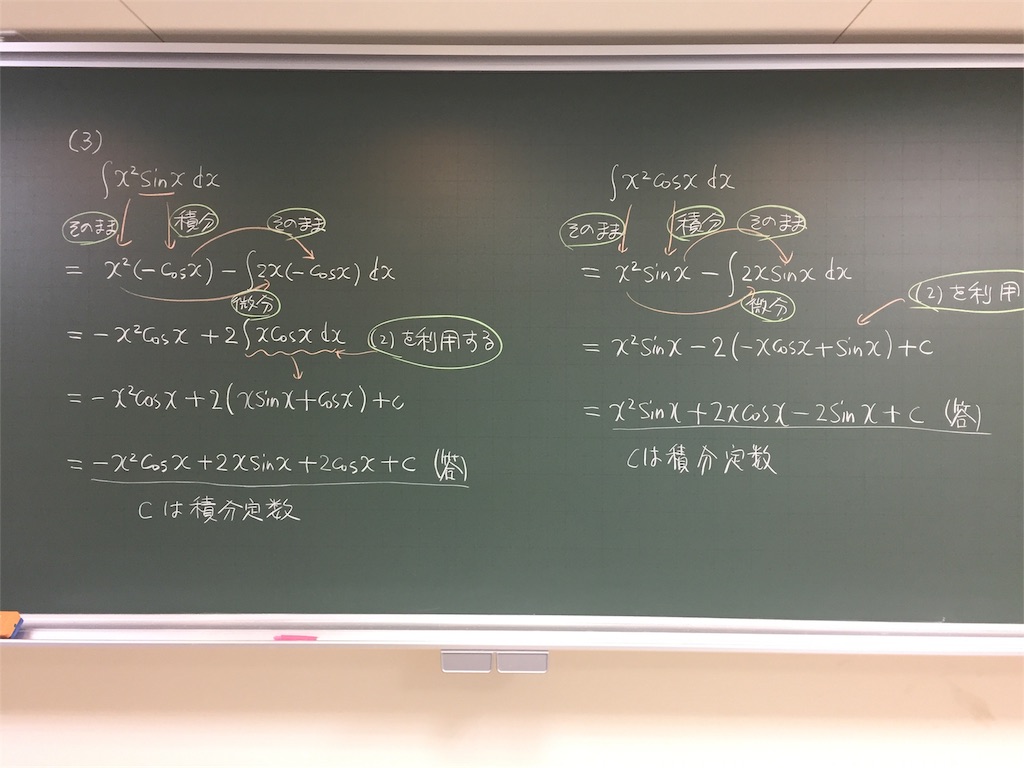 (3)
∫x²sinx dx
そのまま 積分 そのまま
= x²(-cosx) - ∫2x(-cosx) dx
微分
= -x²cosx + 2∫xcosx dx (2)を利用する
= -x²cosx + 2(xsinx+cosx) + c
= -x²cosx + 2xsinx + 2cosx + c (答)
cは積分定数
∫x²cosx dx
そのまま 積分 そのまま
= x²sinx - ∫2xsinx dx
微分 (2)を利用
= x²sinx - 2(-xcosx+sinx) + c
= x²sinx + 2xcosx - 2sinx + c (答)
cは積分定数